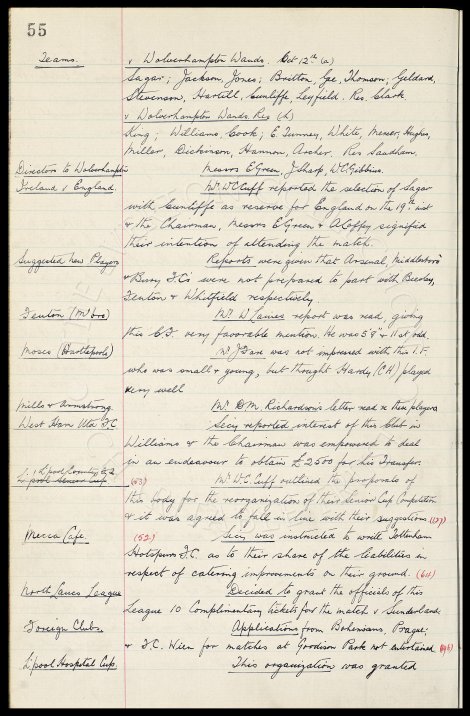 55
Teams. v Wolverhampton Wands. Oct 12th (a)
Sagar; Jackson, Jones; Britton, Gee, Thomson; Geldard,
Stevenson, Hartill, Cunliffe, Leyfield. Res. Clark
v Wolverhampton Wands. Res (h)
King; Williams, Cook; E. Tunney, White, Mercer; Hughes,
Miller, Dickinson, Hannon, Archer. Res Leadham.
Directors to Wolverhampton Messrs E Green, J Sharp, W.C. Gibbins.
Ireland v England. Mr. W.C. Cuff reported the selection of Sagar
with Cunliffe as reserve for England on the 19th inst
& the Chairman, Messrs E Green & A Coffey signified
their intention of attending the match.
Suggested New Players Reports were given that Arsenal, Middlesboro'
& Bury F.C's were not prepared to part with Beasley,
Fenton & Whitfield respectively.
Fenton (M'boro) Mr. W. report was read, giving
this C.F. very favorable mention. He was 5'9" & 11 st odd.
Moses (Hartlepools) Mr J. was not impressed with this I.F.
who was small & young, but thought Hardy (C.H) played
very well
Mills & Armstrong Mr. D.M. Richardson's letter read re these players
West Ham Utd F.C Secy reported interest of this Club in
Williams & the Chairman was empowered to deal
in an endeavour to obtain £2500 for his Transfer.
L'pool Senior Cup (53) Mr. W.C. Cuff outlined the proposals of
this body for the reorganization of their Senior Cup Competition
& it was agreed to fall in line with their suggestions (127)
Mecca Cafe. (52) Secy was instructed to write Tottenham
Hotspurs F.C as to their share of the liabilities in
respect of catering improvements on their ground. (64)
North Lancs League Decided to grant the officials of this
League 10 Complimentary tickets for the match v Sunderland.
Foreign Clubs. Applications from Bohemians, Prague;
& F.C. Wien for matches at Goodison Park not entertained
L'pool Hospital Cup. This organization was granted